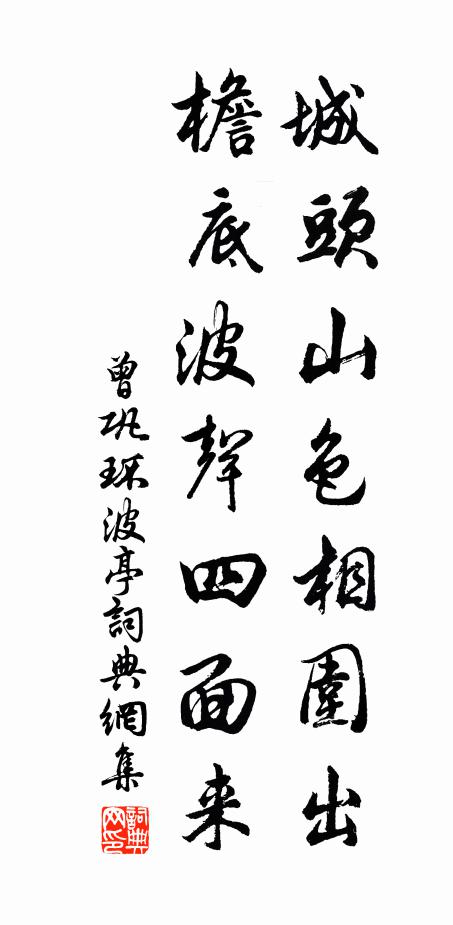 城頭山色相圍出
檐底波聲四面来
曾巩環波亭詞典網集
詞典网印